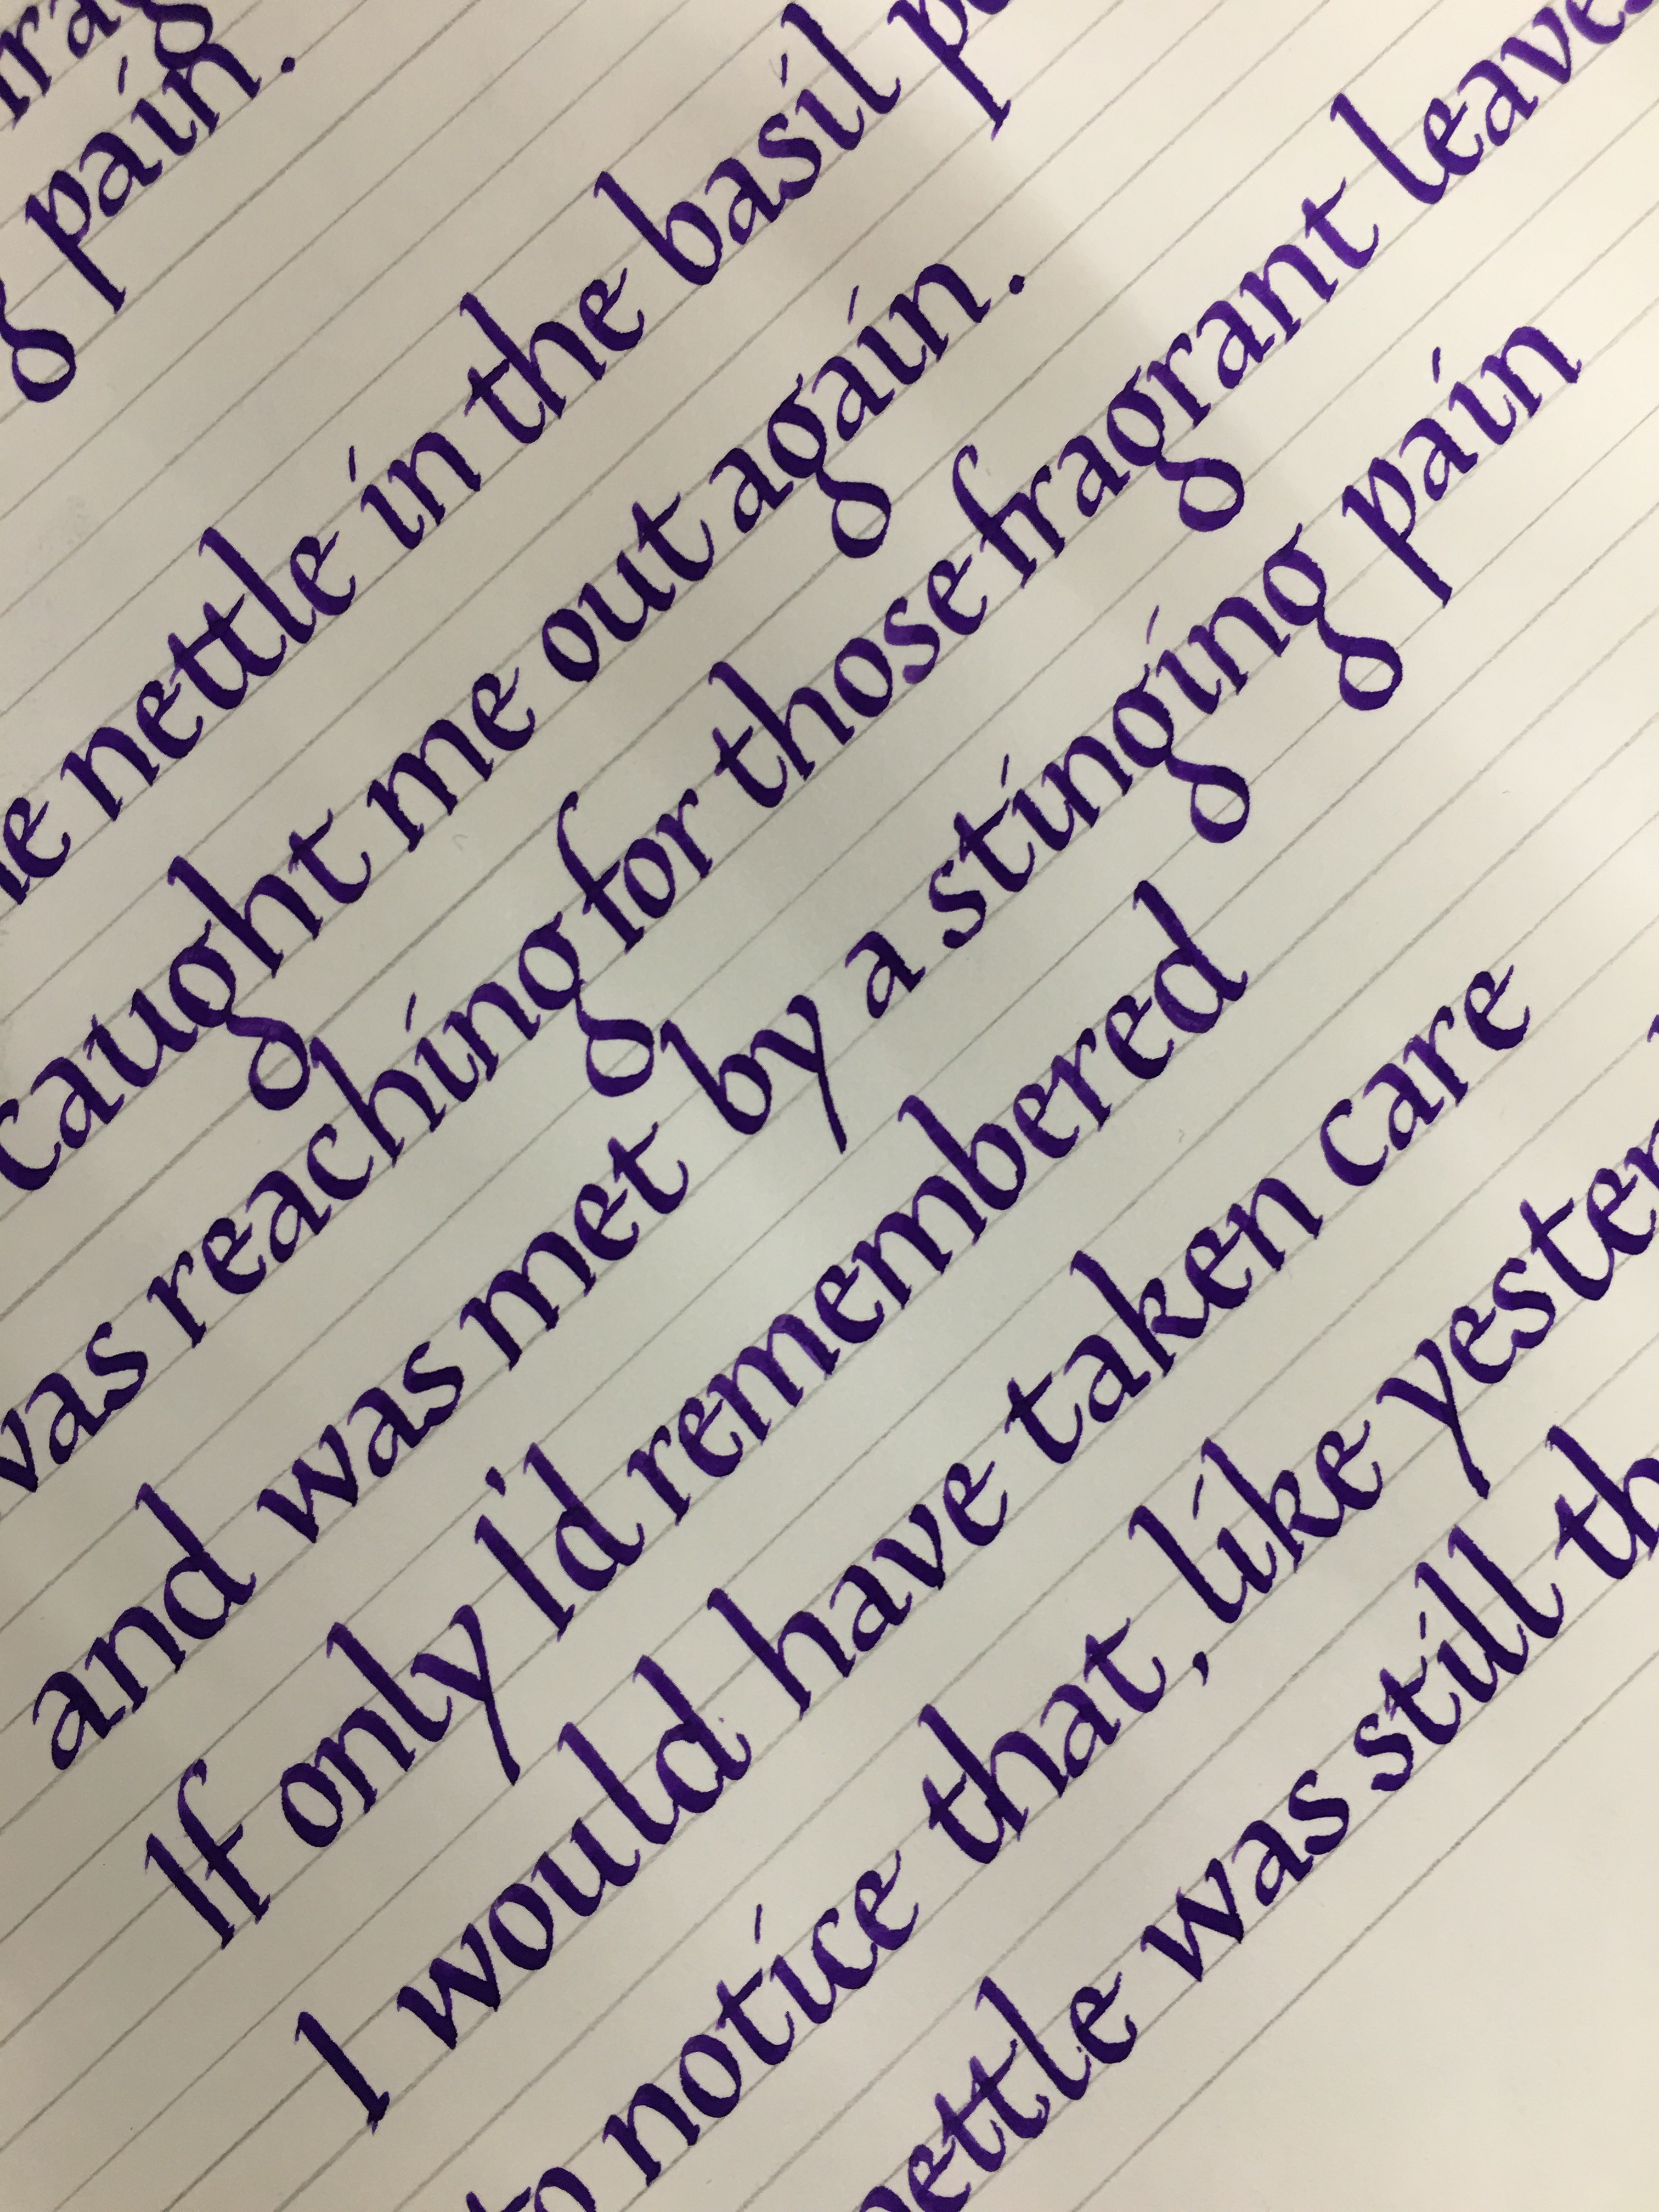 pain.
nettle in the basil
caught me out again.
reaching for those fragrant
and was met by a stinging pain
If only I'd remembered
I would have taken care
to notice that, like
nettle was still